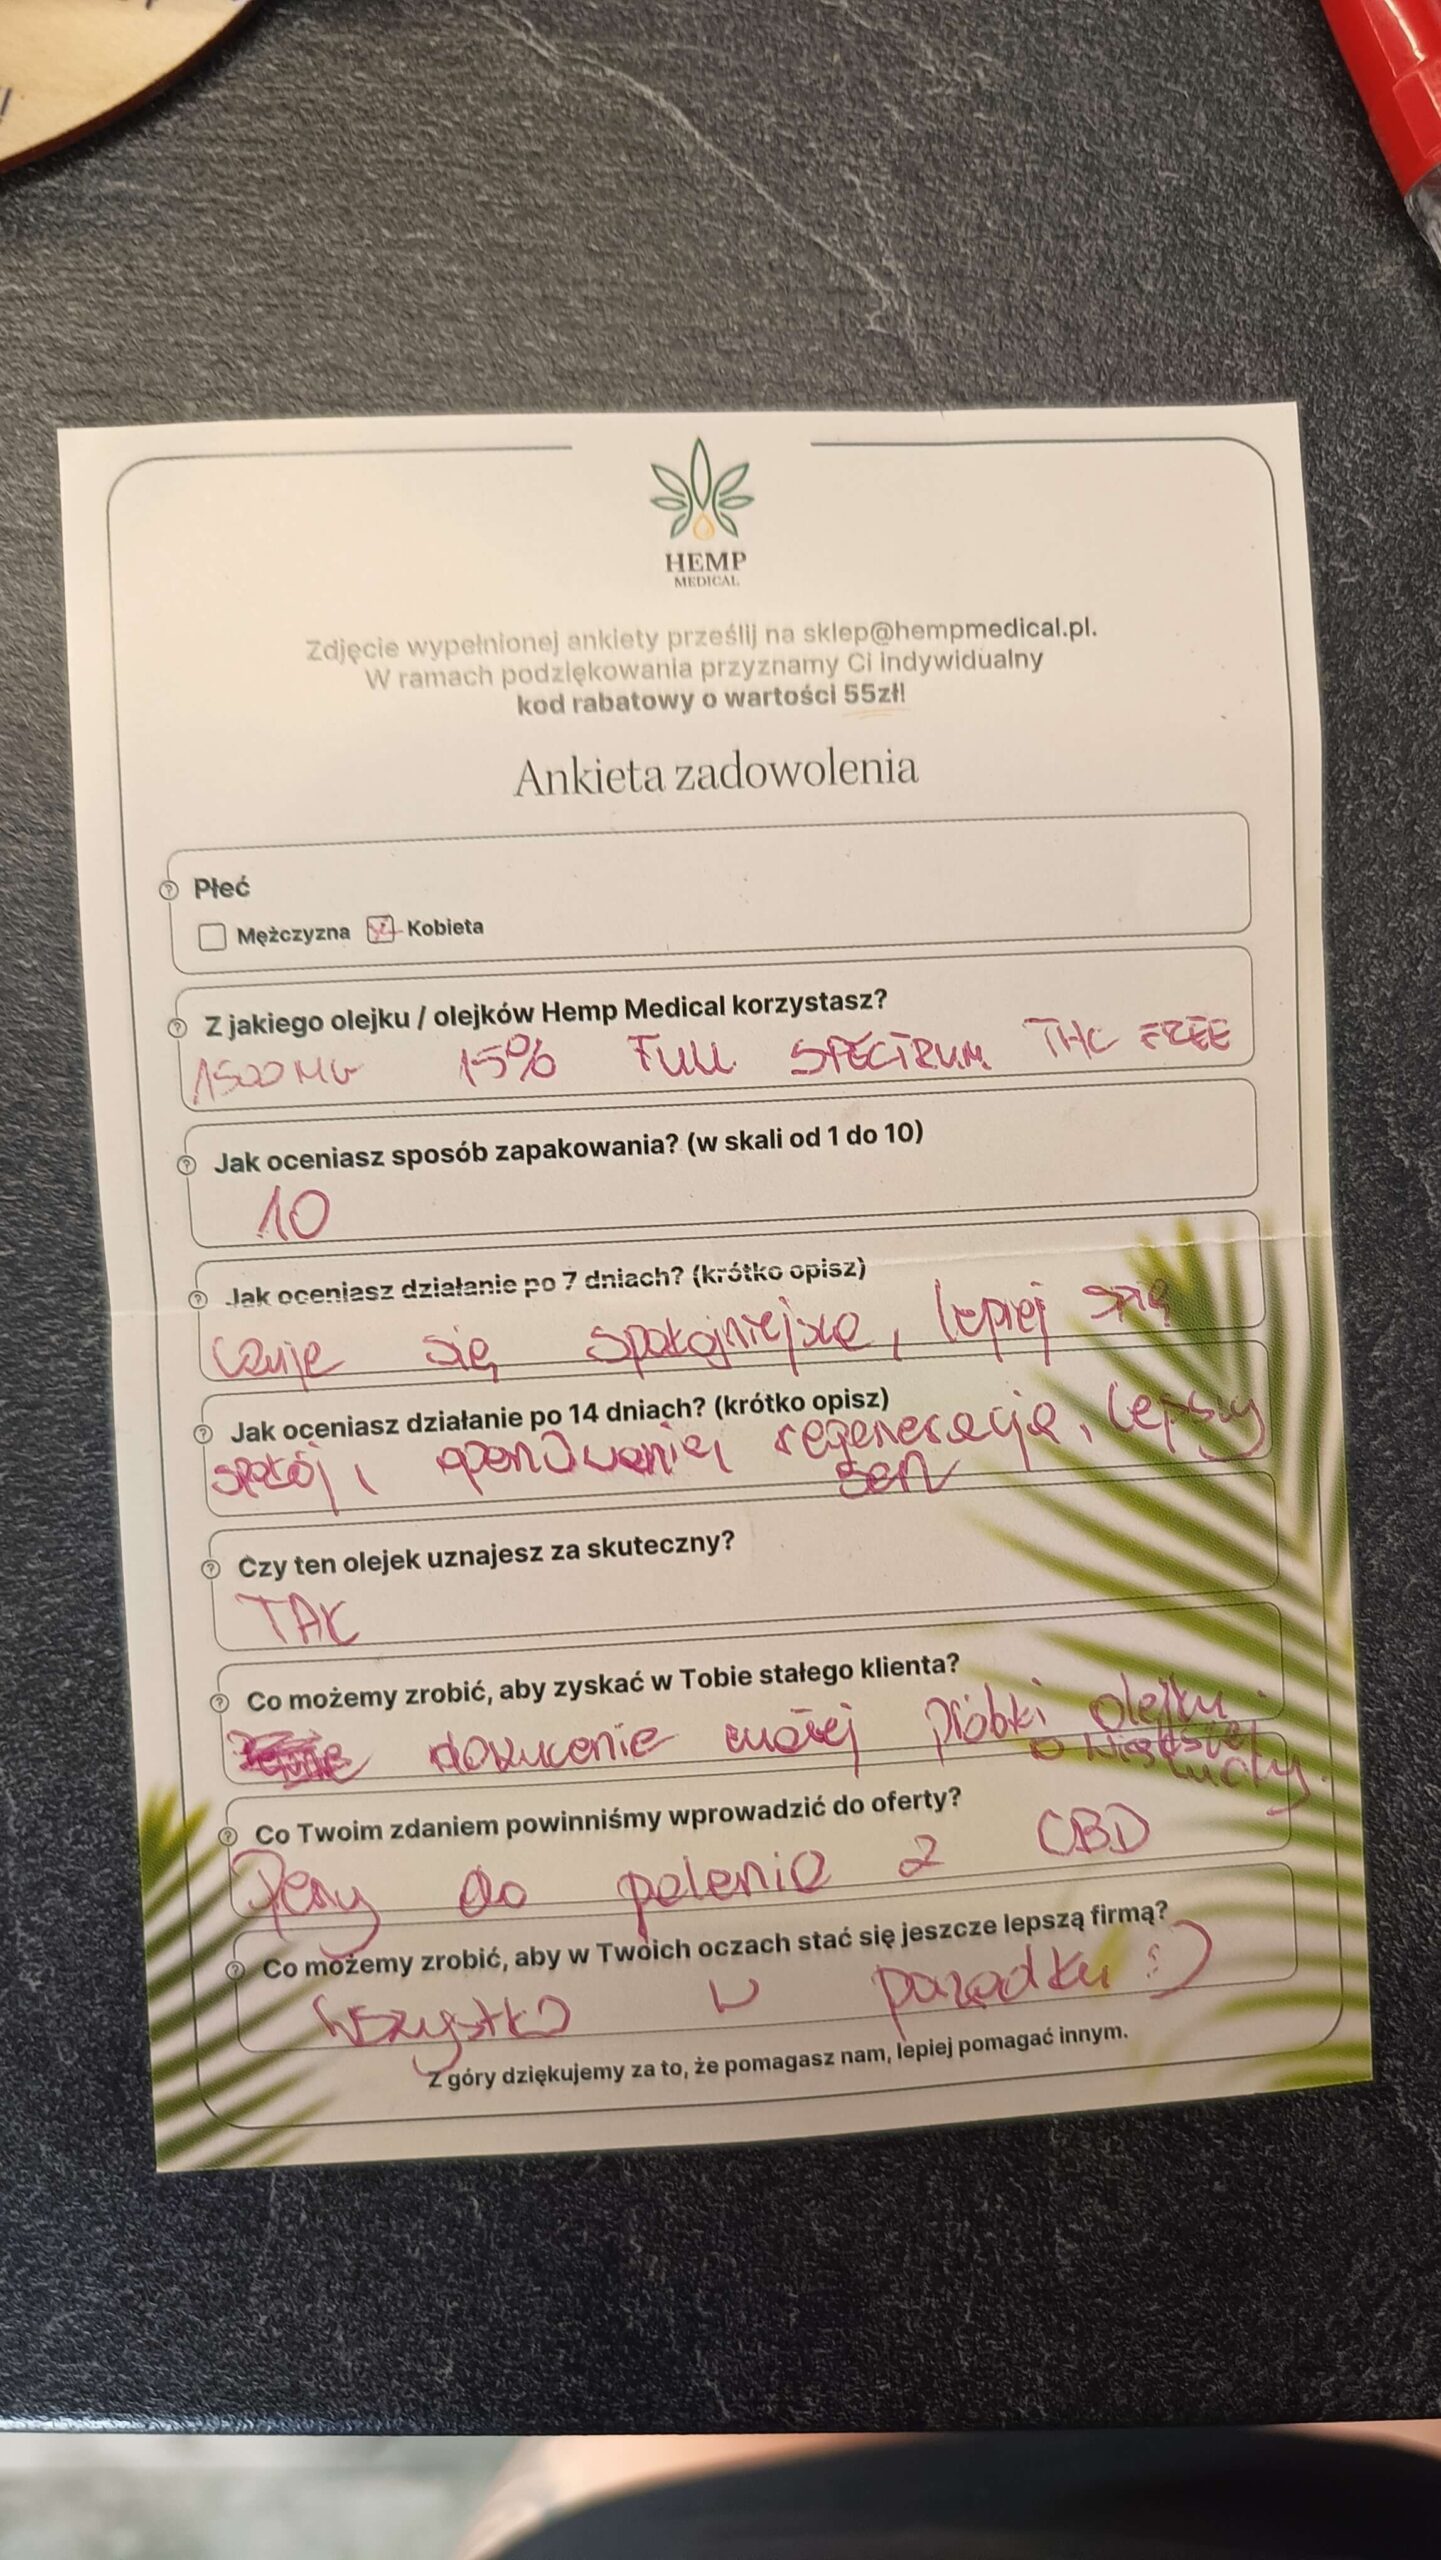 HEMP
MEDICAL
Zdjęcie wypełnionej ankiety prześlij na sklep@hempmedical.pl.
W ramach podziękowania przyznamy Ci indywidualny
kod rabatowy o wartości 55zł!
Ankieta zadowolenia
Płeć
Mężczyzna Kobieta
Z jakiego olejku / olejków Hemp Medical korzystasz?
1500 MG 15% FULL SPECTRUM THC FREE
Jak oceniasz sposób zapakowania? (w skali od 1 do 10)
10
Jak oceniasz działanie po 7 dniach? (krótko opisz)
czuje się spokojniejsza, lepiej śpię
Jak oceniasz działanie po 14 dniach? (krótko opisz)
spokój, opanowanie, regeneracja, lepszy
sen
Czy ten olejek uznajesz za skuteczny?
TAK
Co możemy zrobić, aby zyskać w Tobie stałego klienta?
dorzucenie małej próbki olejku
o
Co Twoim zdaniem powinniśmy wprowadzić do oferty?
do palenia z CBD
Co możemy zrobić, aby w Twoich oczach stać się jeszcze lepszą firmą?
Wszystko w porządku :)
Z góry dziękujemy za to, że pomagasz nam, lepiej pomagać innym.